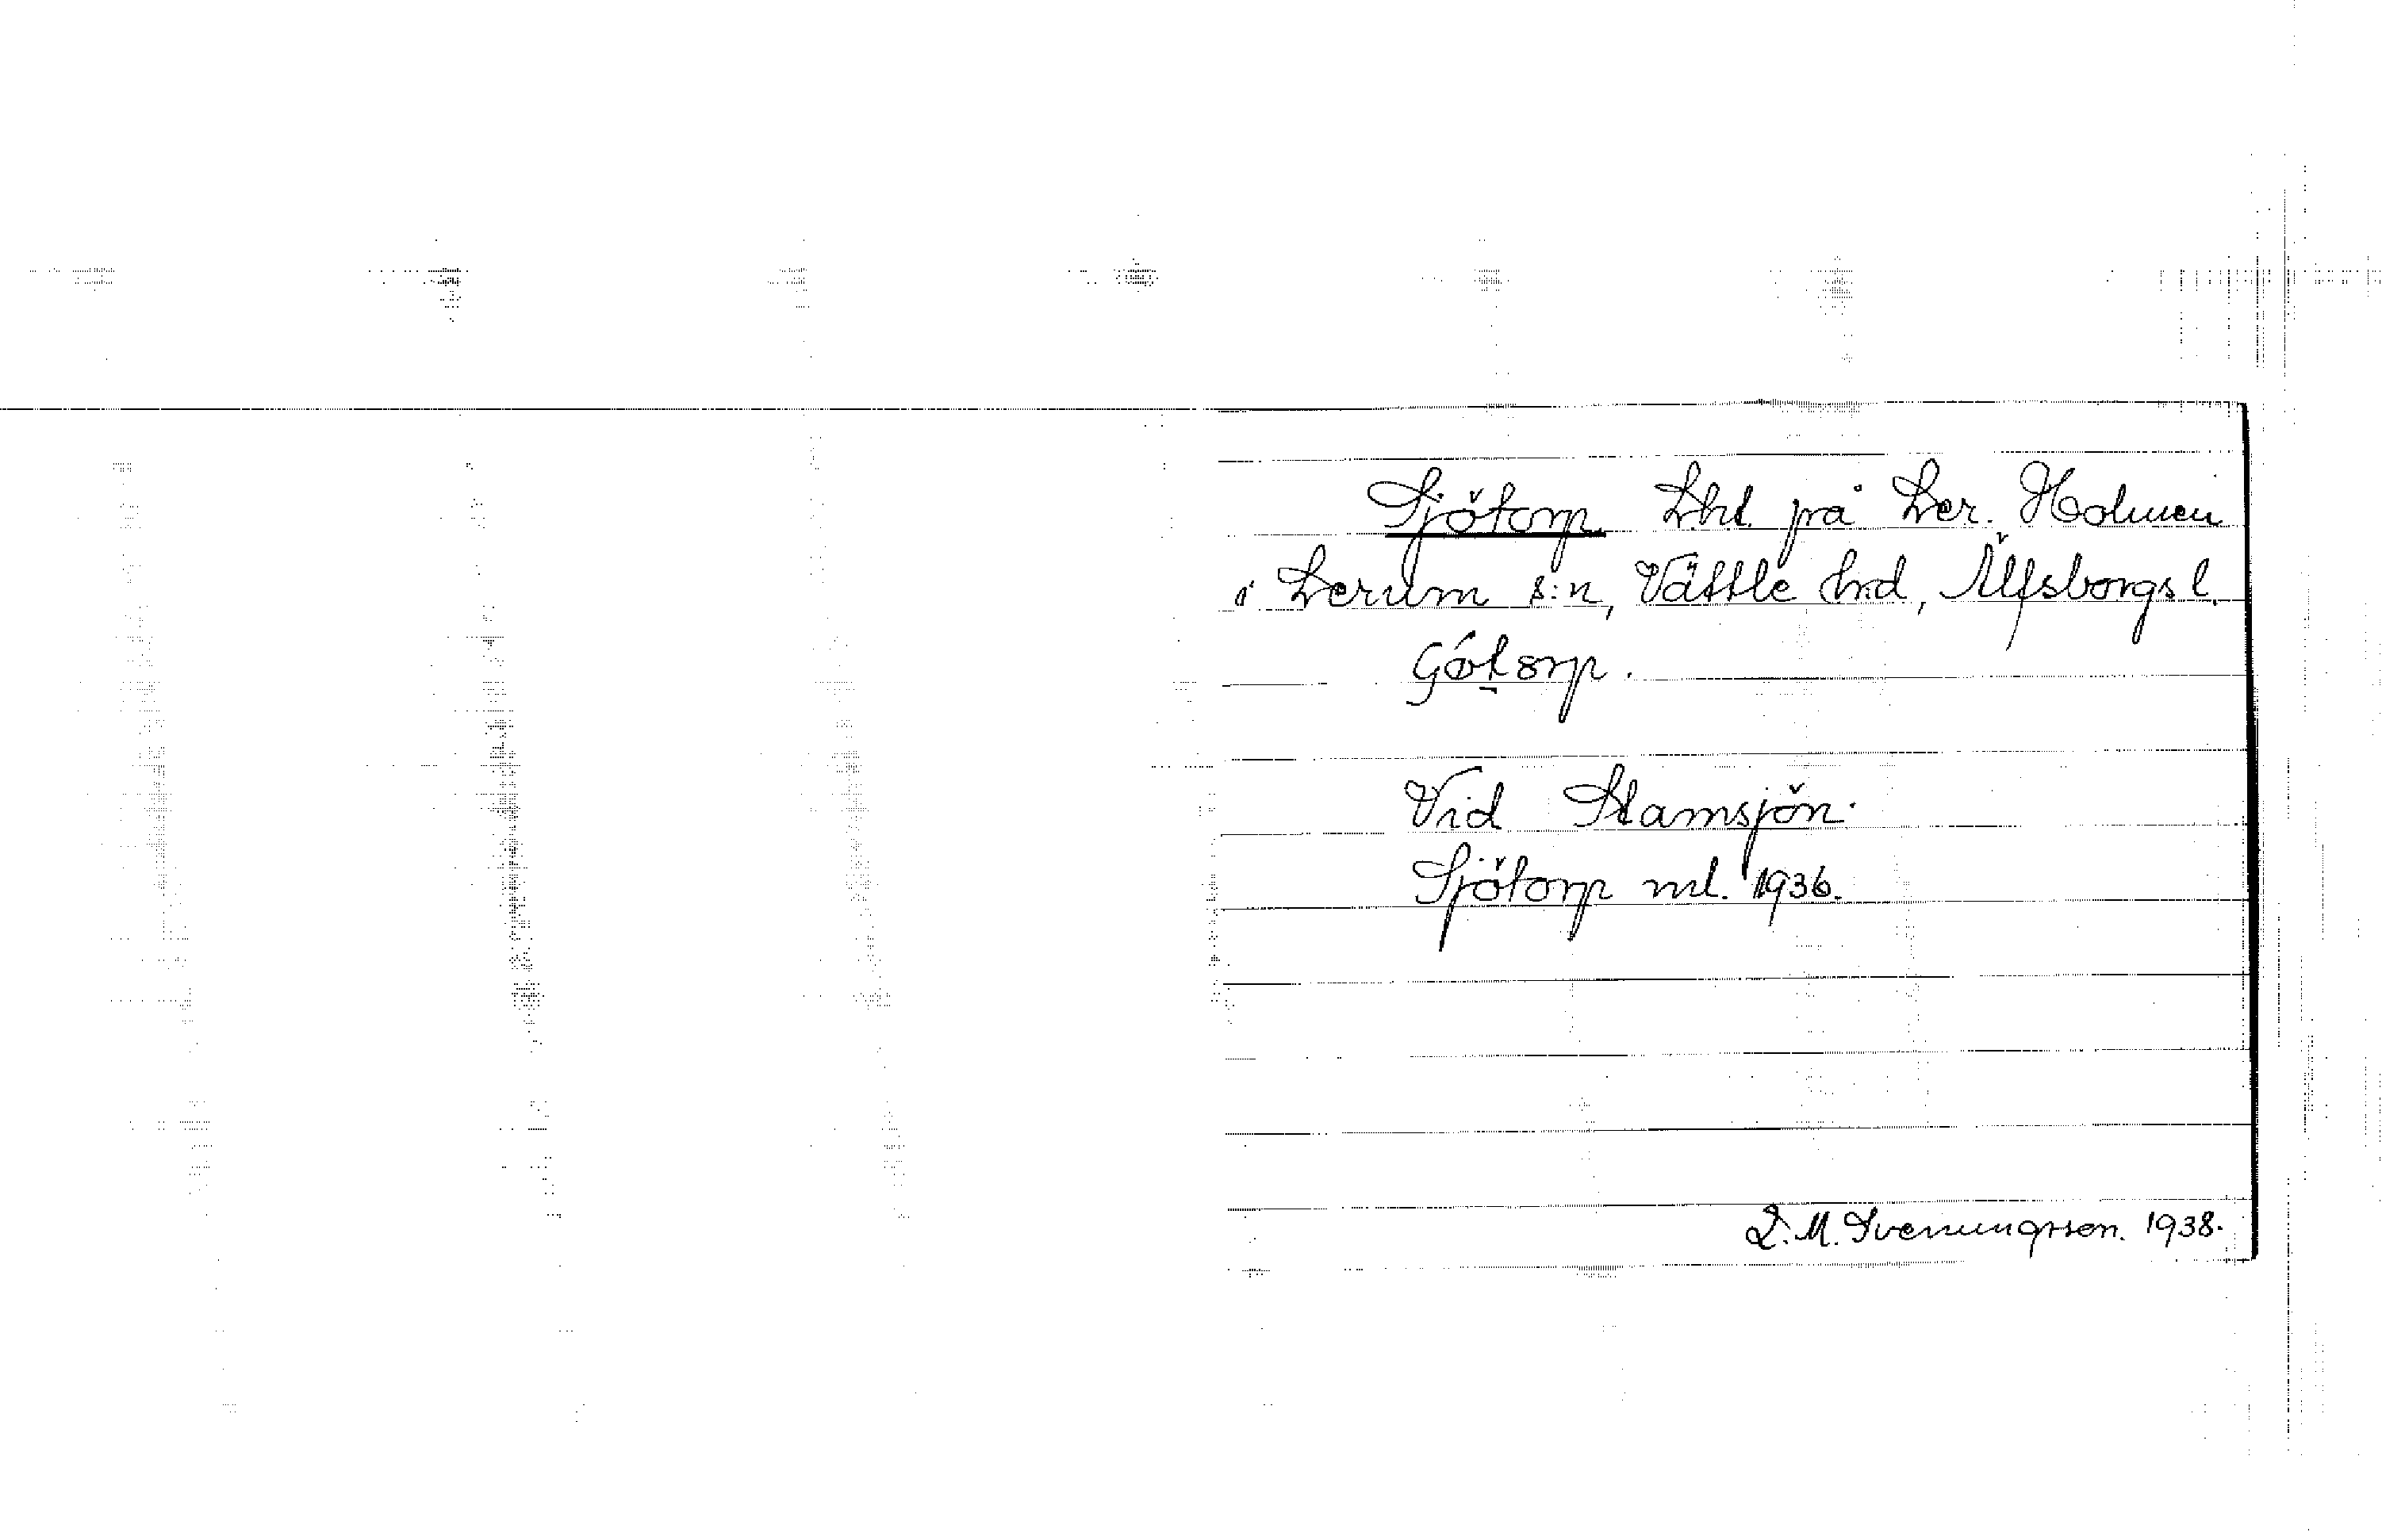 Sjötorp. Lht. på Ler. Holmen
i Lerum s:n, Vättle hrd, Älfsborgs l.
Vid Stamsjön.
Sjötorp ml. 1936.
D. M. Svenungsson. 1938.